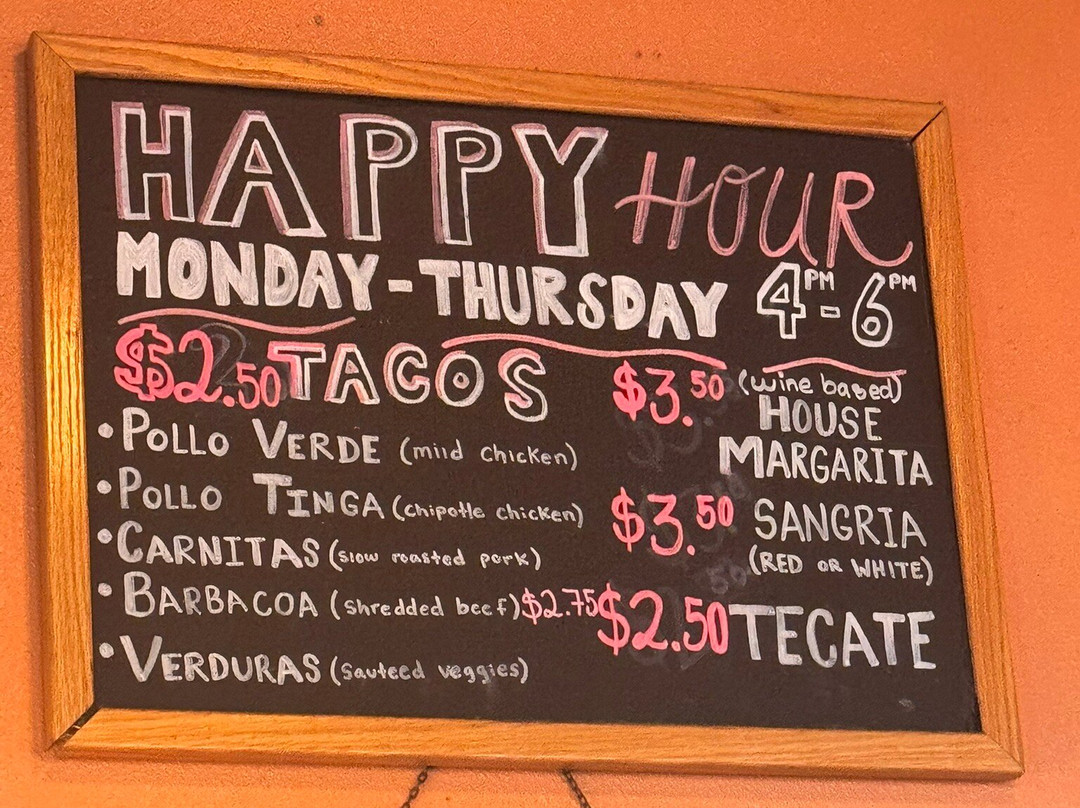 HAPPY HOUR
MONDAY - THURSDAY 4PM - 6PM
$2.50 TACOS
• POLLO VERDE (mild chicken)
• POLLO TINGA (chipotle chicken)
• CARNITAS (slow roasted pork)
• BARBACOA (shredded beef) $2.75
• VERDURAS (sauteed veggies)
$3.50 (wine based)
HOUSE
MARGARITA
$3.50 SANGRIA
(RED OR WHITE)
$2.50 TECATE